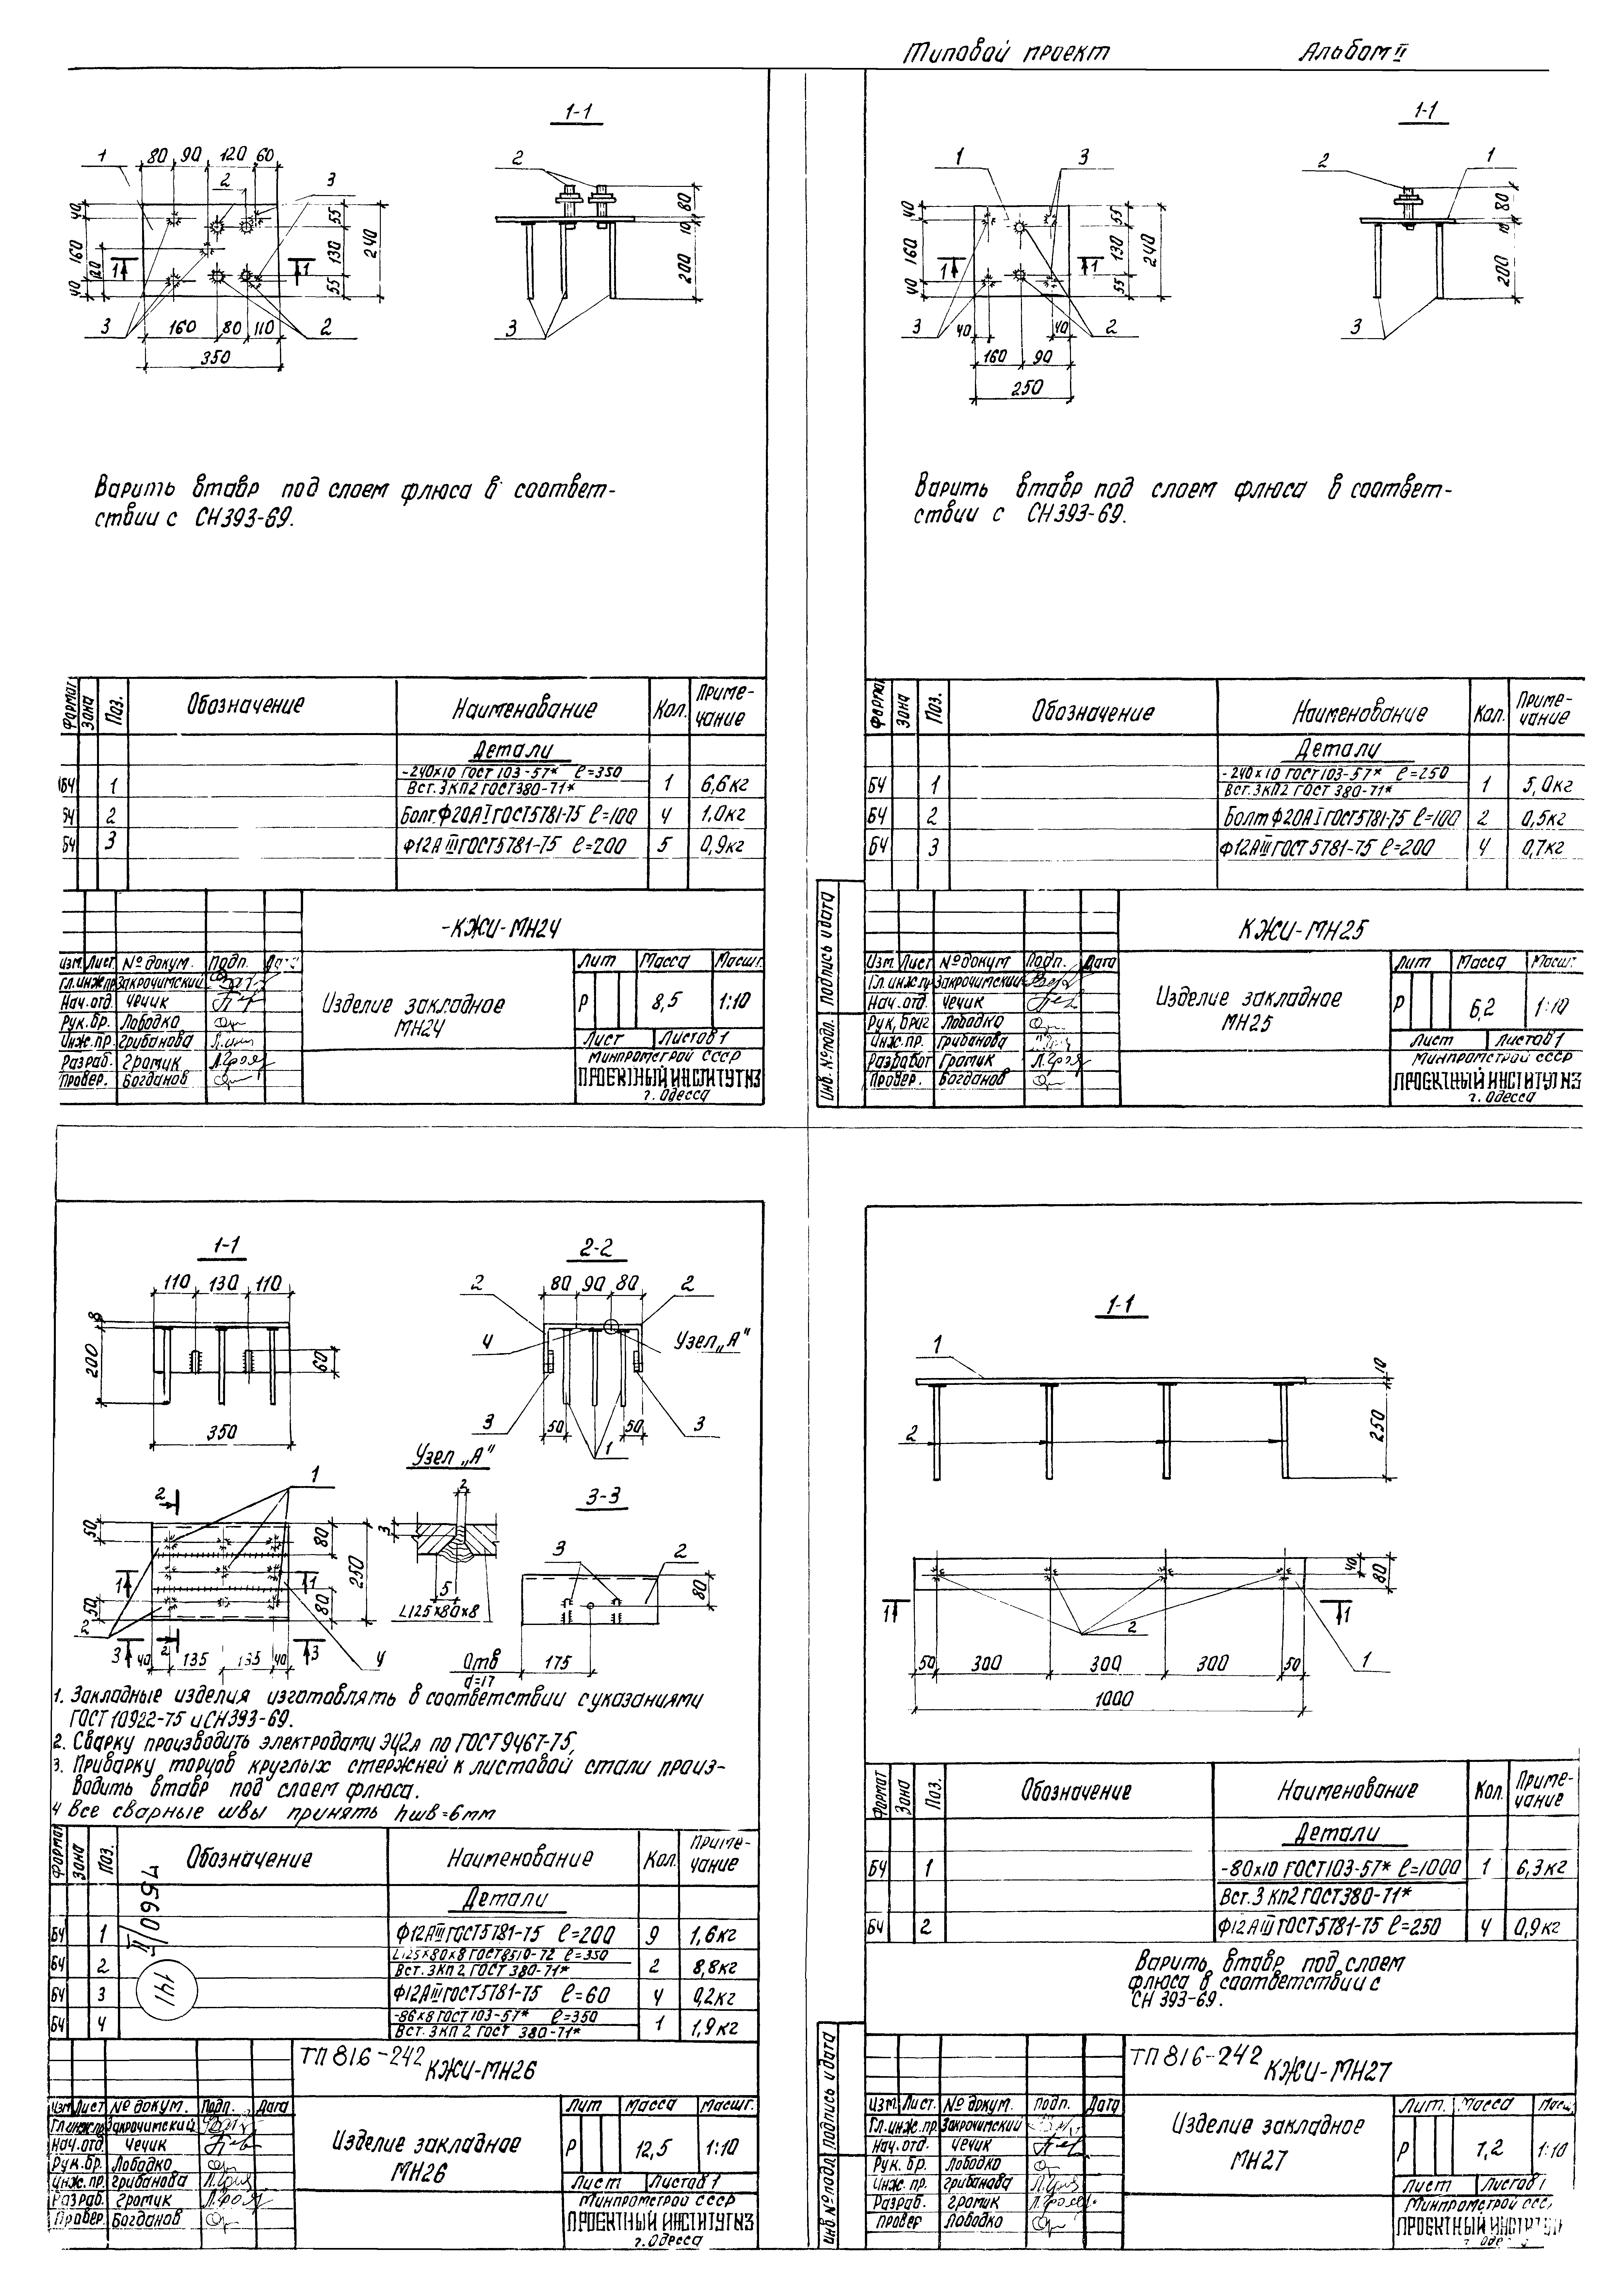 Типовой проект Альбом II
1-1
1 80 90 120 60
2 3
40 160 120 40
55 130 55 240
1 1
3 160 80 110 2
350
2
80 10 200
3
Варить втавр под слоем флюса в соответ-
ствии с СН 393-69.
Формат Зона Поз. Обозначение Наименование Кол. Приме-
чание
Детали
БЧ 1 -240х10 ГОСТ 103-57* ℓ=350 1 6,6кг
Вст.3кп2 ГОСТ380-71*
БЧ 2 Болт Ф20АI ГОСТ5781-75 ℓ=100 4 1,0кг
БЧ 3 Ф12АIII ГОСТ5781-75 ℓ=200 5 0,9кг
-КЖИ-МН24
Изм. Лист № докум. Подп. Дата
Гл.инж.пр. Закрочимский
Нач.отд. Чечик
Рук.бр. Лободко
Инж.пр. Грибанова
Разраб. Громик
Провер. Богданов
Изделие закладное
МН24
Лит Масса Масшт.
Р 8,5 1:10
Лист Листов 1
Минпромстрой СССР
ПРОЕКТНЫЙ ИНСТИТУТ №3
г. Одесса
1-1
1 3
40 160 40
55 130 55 240
1 1
3 40 40 2
160 90
250
2 1
80 10 200
3
Варить втавр под слоем флюса в соответ-
ствии с СН 393-69.
Формат Зона Поз. Обозначение Наименование Кол. Приме-
чание
Детали
БЧ 1 -240х10 ГОСТ103-57* ℓ=250 1 5,0кг
Вст.3кп2 ГОСТ 380-71*
БЧ 2 Болт Ф20АI ГОСТ5781-75 ℓ=100 2 0,5кг
БЧ 3 Ф12АIII ГОСТ 5781-75 ℓ=200 4 0,7кг
КЖИ-МН25
Изм. Лист. № докум Подп. Дата
Гл.инж.пр Закрочимский
Нач.отд. Чечик
Рук.бриг Лободко
Инж.пр. Грибанова
Разработ Громик
Провер. Богданов
Изделие закладное
МН25
Лит Масса Масшт.
Р 6,2 1:10
Лист Листов 1
Минпромстрой СССР
ПРОЕКТНЫЙ ИНСТИТУТ №3
г. Одесса
Инв.№ подл. Подпись и дата
1-1
110 130 110
8 200 60
350
2-2
2 80 90 80 2
4 Узел „А"
3 50 50 3
1
Узел „А"
2
3
5
L125×80×8
3-3
3 2
80
Отв
d=17
175
2 1
50 80 250
1 1
50 80
2 3 2 3
40 135 135 40 4
1. Закладные изделия изготовлять в соответствии с указаниями
ГОСТ 10922-75 и СН393-69.
2. Сварку производить электродами Э42л по ГОСТ9467-75,
3. Приварку торцов круглых стержней к листовой стали произ-
водить втавр под слоем флюса.
4 Все сварные швы принять hшв=6мм
Формат Зона Поз. Обозначение Наименование Кол. Приме-
чание
Детали
БЧ 1 Ф12АIII ГОСТ5781-75 ℓ=200 9 1,6кг
БЧ 2 L125х80х8 ГОСТ8510-72 ℓ=350 2 8,8кг
Вст.3кп2 ГОСТ 380-71*
БЧ 3 Ф12АIII ГОСТ5781-75 ℓ=60 4 0,2кг
БЧ 4 -86х8 ГОСТ 103-57* ℓ=350 1 1,9кг
Вст.3кп2 ГОСТ 380-71*
7560/II
141
ТП 816-242 КЖИ-МН26
Изм Лист № докум. Подп. Дата
Гл.инж.пр. Закрочимский
Нач.отд. Чечик
Рук.бр. Лободко
Инж.пр. Грибанова
Разраб. Громик
Провер. Богданов
Изделие закладное
МН26
Лит Масса Масшт.
Р 12,5 1:10
Лист Листов 1
Минпромстрой СССР
ПРОЕКТНЫЙ ИНСТИТУТ №3
г.Одесса
1-1
1
10 250
2
40 80
1 2 1
50 300 300 300 50 1
1000
Формат Зона Поз. Обозначение Наименование Кол. Приме-
чание
Детали
БЧ 1 -80х10 ГОСТ103-57* ℓ=1000 1 6,3кг
Вст.3 кп2 ГОСТ380-71*
БЧ 2 Ф12АIII ГОСТ5781-75 ℓ=250 4 0,9кг
Варить втавр под слоем
флюса в соответствии с
СН 393-69.
ТП 816-242 КЖИ-МН27
Изм. Лист. № докум. Подп. Дата
Гл.инж.пр. Закрочимский
Нач.отд. Чечик
Рук. бр. Лободко
Инж.пр. Грибанова
Разраб. Громик
Провер Лободко
Изделие закладное
МН27
Лит. Масса
Р 7,2 1:10
Лист Листов 1
Минпромстрой СССР
ПРОЕКТНЫЙ ИНСТИТУТ
Инв.№ подл. Подпись и дата